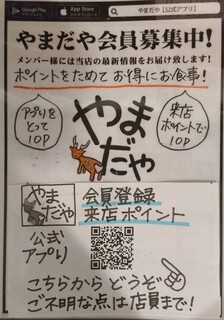 Google Play
App Store
やまだや【公式アプリ】
やまだや会員募集中!
メンバー様には当店の最新情報をお届け致します!
ポイントをためてお得にお食事!
アプリを
とって
10P
やま
だや
来店
ポイントで
10P
やま
だや
会員登録
来店ポイント
公式
アプリ
こちらから どうぞ
ご不明な点は店員まで!